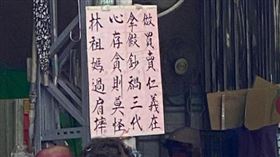 做買賣仁義在
拿假鈔禍三代
心存貪則莫怪
林祖媽過肩摔